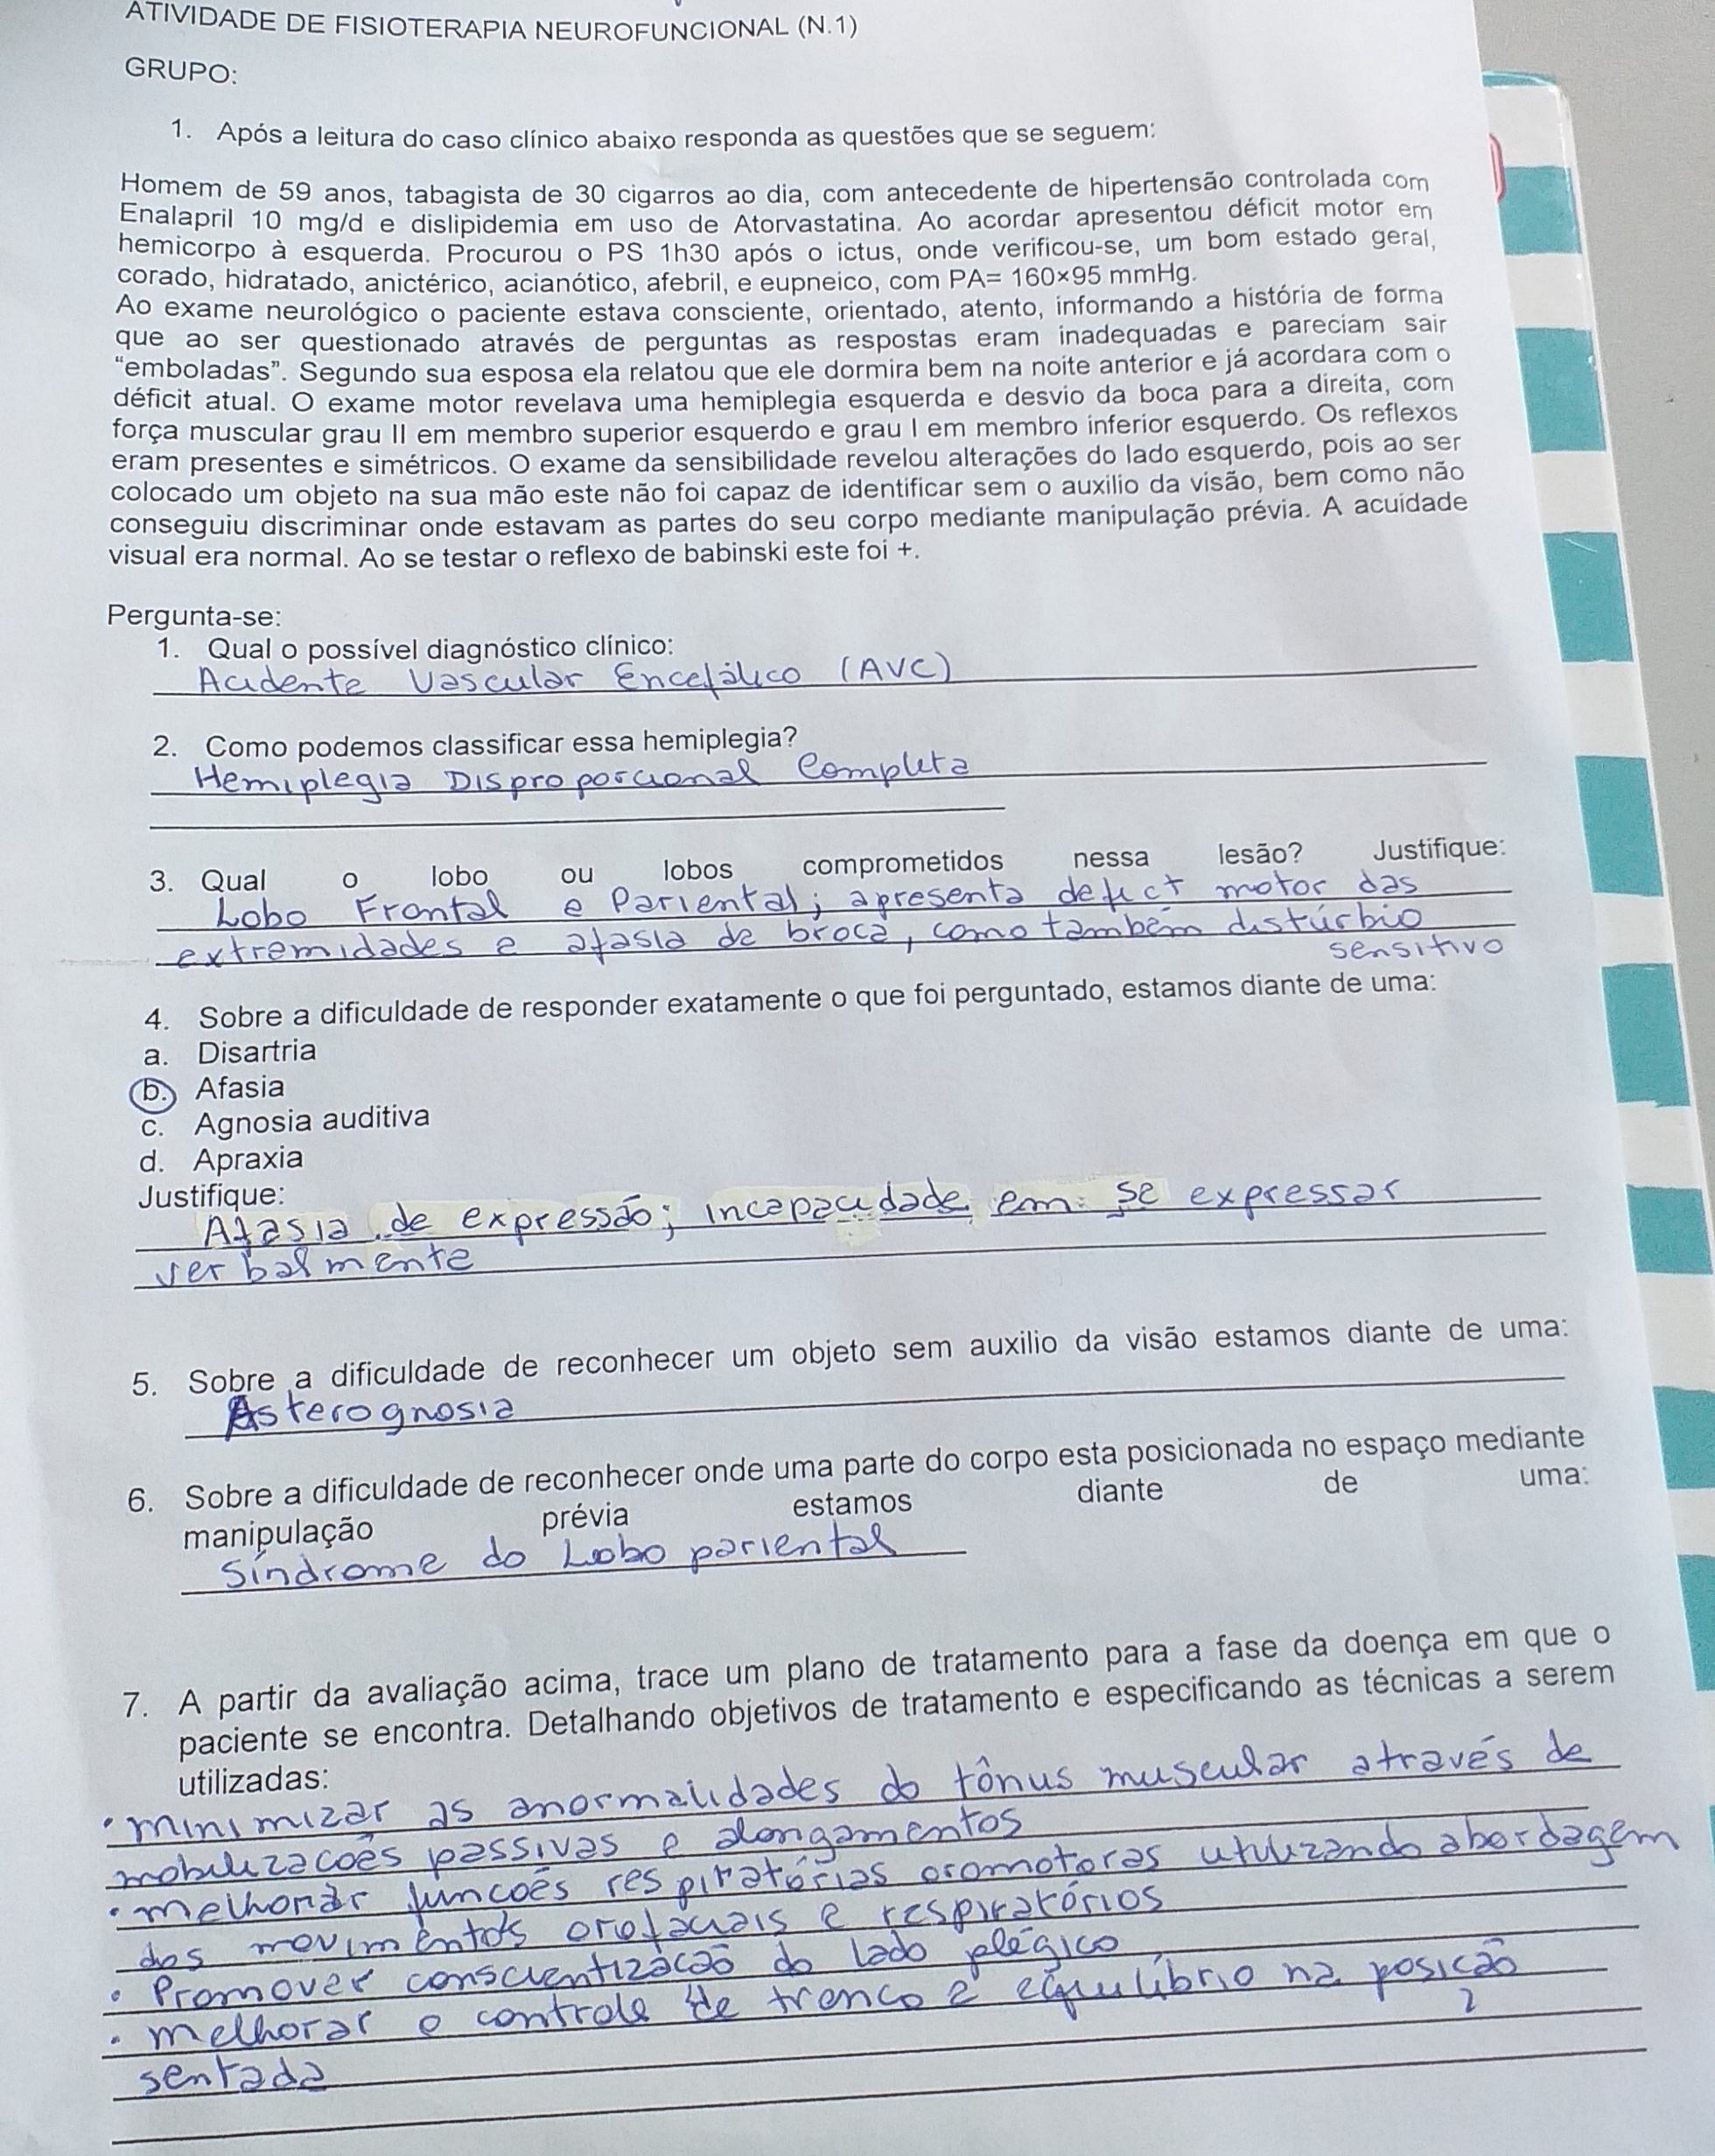 ATIVIDADE DE FISIOTERAPIA NEUROFUNCIONAL (N.1)
GRUPO:
1. Após a leitura do caso clínico abaixo responda as questões que se seguem:
Homem de 59 anos, tabagista de 30 cigarros ao dia, com antecedente de hipertensão controlada com
Enalapril 10 mg/d e dislipidemia em uso de Atorvastatina. Ao acordar apresentou déficit motor em
hemicorpo à esquerda. Procurou o PS 1h30 após o ictus, onde verificou-se, um bom estado geral,
corado, hidratado, anictérico, acianótico, afebril, e eupneico, com PA= 160×95 mmHg.
Ao exame neurológico o paciente estava consciente, orientado, atento, informando a história de forma
que ao ser questionado através de perguntas as respostas eram inadequadas e pareciam sair
“emboladas”. Segundo sua esposa ela relatou que ele dormira bem na noite anterior e já acordara com o
déficit atual. O exame motor revelava uma hemiplegia esquerda e desvio da boca para a direita, com
força muscular grau II em membro superior esquerdo e grau I em membro inferior esquerdo. Os reflexos
eram presentes e simétricos. O exame da sensibilidade revelou alterações do lado esquerdo, pois ao ser
colocado um objeto na sua mão este não foi capaz de identificar sem o auxilio da visão, bem como não
conseguiu discriminar onde estavam as partes do seu corpo mediante manipulação prévia. A acuidade
visual era normal. Ao se testar o reflexo de babinski este foi +.
Pergunta-se:
1. Qual o possível diagnóstico clínico:
Acidente Vascular Encefálico (AVC)
2. Como podemos classificar essa hemiplegia?
Hemiplegia Disproporcional Completa
3. Qual o lobo ou lobos comprometidos nessa lesão? Justifique:
Lobo Frontal e Pariental; apresenta defict motor das
extremidades e afasia de broca, como também distúrbio
sensitivo
4. Sobre a dificuldade de responder exatamente o que foi perguntado, estamos diante de uma:
a. Disartria
b. Afasia
c. Agnosia auditiva
d. Apraxia
Justifique:
Afasia de expressão; incapacidade em se expressar
verbalmente
5. Sobre a dificuldade de reconhecer um objeto sem auxilio da visão estamos diante de uma:
Asterognosia
6. Sobre a dificuldade de reconhecer onde uma parte do corpo esta posicionada no espaço mediante
manipulação prévia estamos diante de uma:
Síndrome do Lobo pariental
7. A partir da avaliação acima, trace um plano de tratamento para a fase da doença em que o
paciente se encontra. Detalhando objetivos de tratamento e especificando as técnicas a serem
utilizadas:
• minimizar as anormalidades do tônus muscular através de
mobilizacoẽs passivas e alongamentos
• melhorar funcoẽs respiratórias oromotoras utilizando abordagem
dos movimentos orofaciais e respiratórios
• Promover conscientizacaõ do lado plégico
• melhorar o controle de tronco e equilíbrio na posição
sentada